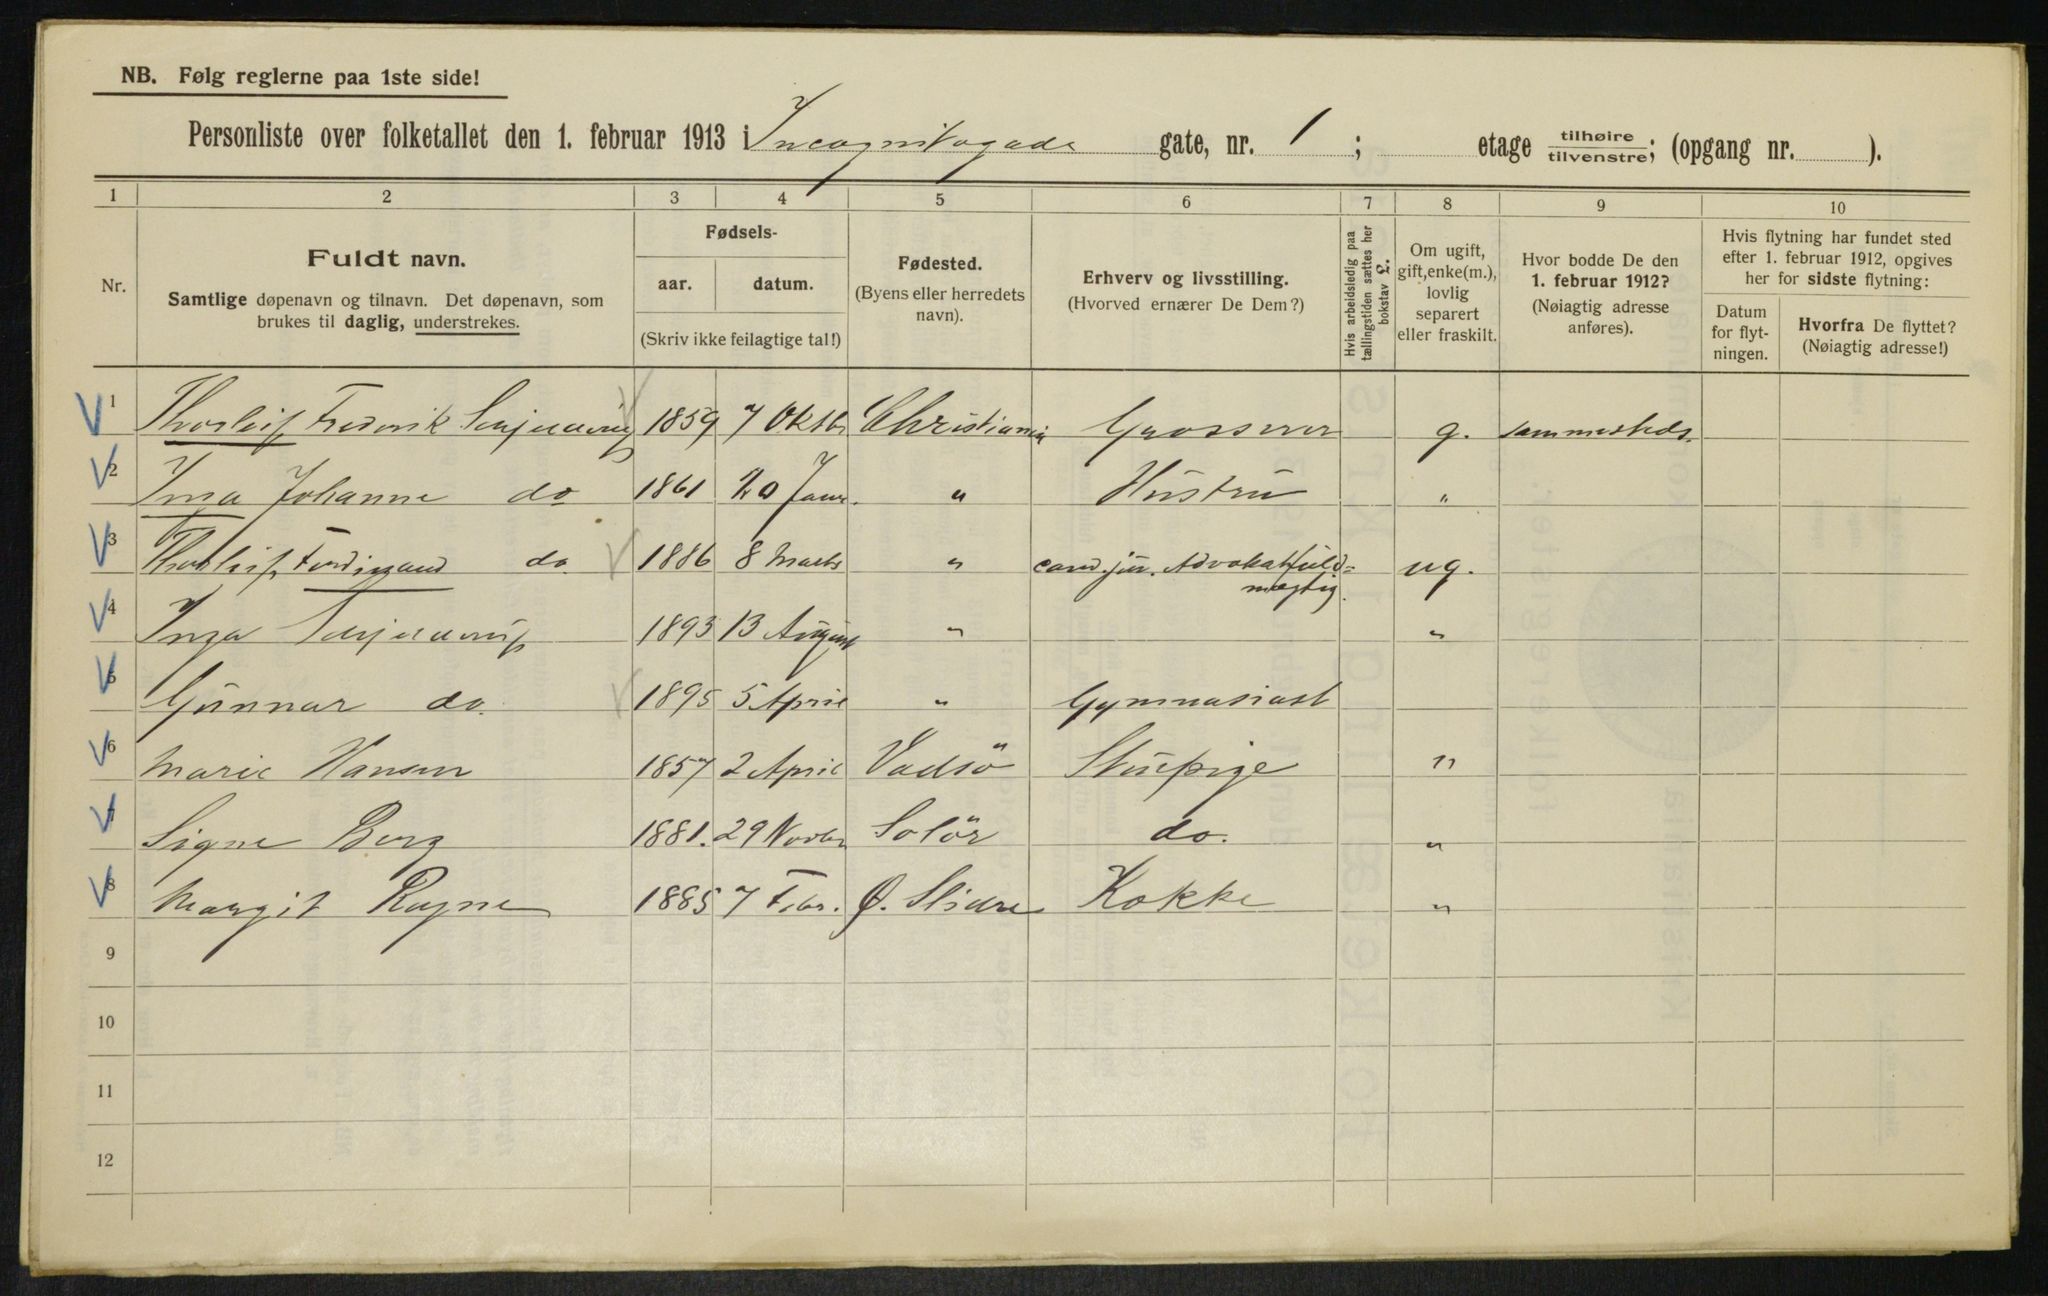 NB. Følg reglerne paa 1ste side!
Personliste over folketallet den 1. februar 1913 i Incognitogade gate, nr. 1 ; etage tilhøire/tilvenstre; (opgang nr. ).
1 2 3 4 5 6 7 8 9 10
Nr.
Fuldt navn.
Samtlige døpenavn og tilnavn. Det døpenavn, som
brukes til daglig, understrekes.
Fødsels-
aar. datum.
(Skriv ikke feilagtige tal!)
Fødested.
(Byens eller herredets
navn).
Erhverv og livsstilling.
(Hvorved ernærer De Dem?)
Hvis arbeidsledig paa
tællingstiden sættes her
bokstav £.
Om ugift,
gift, enke(m.),
lovlig
separert
eller fraskilt.
Hvor bodde De den
1. februar 1912?
(Nøiagtig adresse
anføres).
Hvis flytning har fundet sted
efter 1. februar 1912, opgives
her for sidste flytning:
Datum
for flyt-
ningen.
Hvorfra De flyttet?
(Nøiagtig adresse!)
1 Thorleif Frederik 1859 7 Oktbr Christiania Grosserer g. sammesteds.
2 Inga Johanne do 1861 20 Janr. " Hustru "
3 Thorleif Ferdinand do. 1886 8 Marts " cand. jur. Advokatfuld=
mægtig. ug.
4 Inga 1893 13 August " "
5 Gunnar do. 1895 5 April " Gymnasiast
6 Marie Hansen 1857 2 April Vadsö Stuepige "
7 Signe Berg 1881. 29 Novbr Solör do. "
8 Margit Rogne 1885 7 Febr. Ø. Slidre Kokke "
9
10
11
12